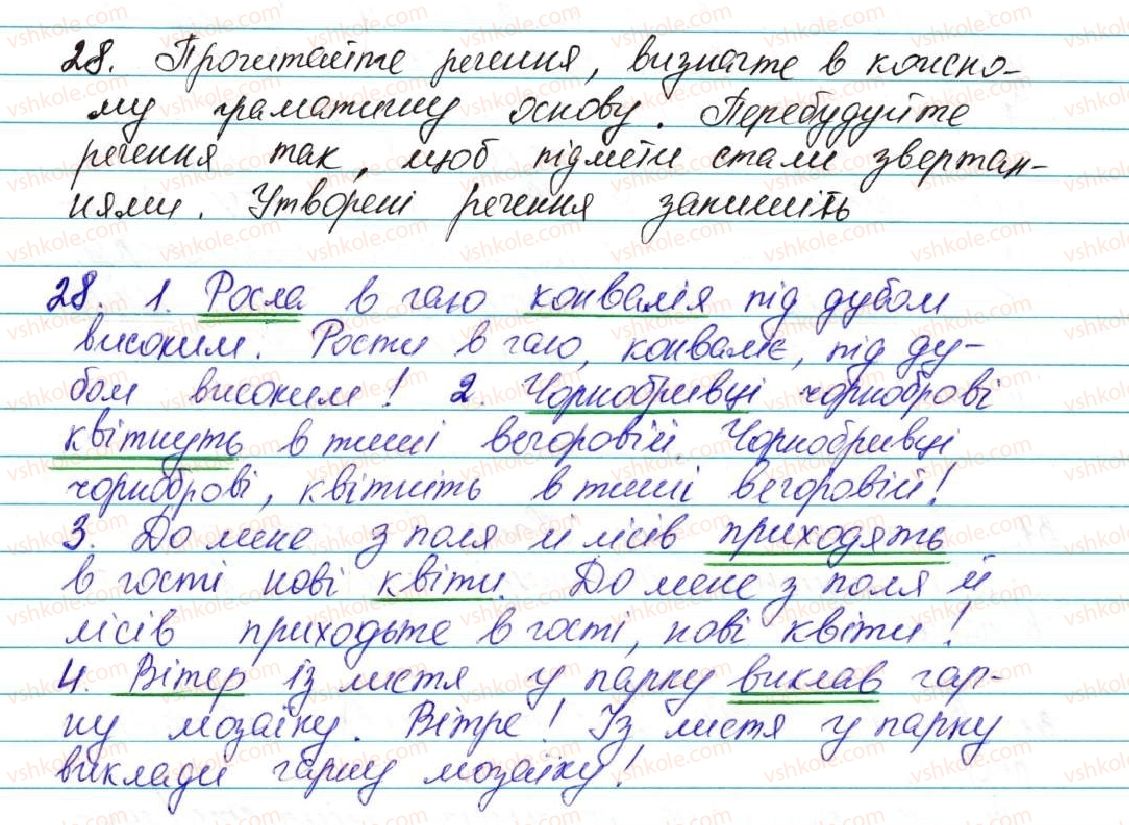 28. Прочитайте речення, визначте в кожно-
му граматичну основу. Перебудуйте
речення так, щоб підмети стали звертан-
нями. Утворені речення запишіть
28. 1. Росла в гаю конвалія під дубом
високим. Рости в гаю, конваліє, під ду-
бом високим! 2. Чорнобривці чорноброві
квітнуть в тиші вечоровій. Чорнобривці
чорноброві, квітніть в тиші вечоровій!
3. До мене з поля й лісів приходять
в гості нові квіти. До мене з поля й
лісів приходьте в гості, нові квіти!
4. Вітер із листя у парку виклав гар-
ну мозаїку. Вітре! Із листя у парку
виклади гарну мозаїку!